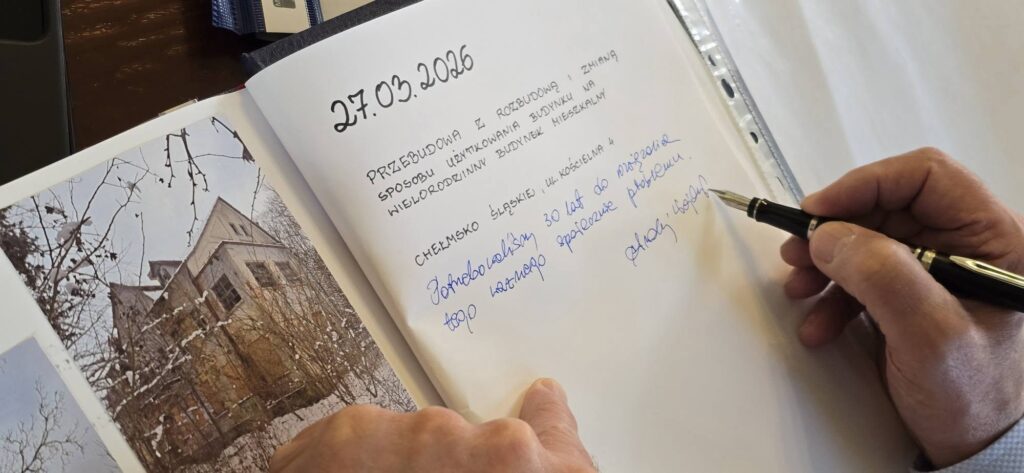 27.03.2026
PRZEBUDOWA Z ROZBUDOWĄ I ZMIANĄ
SPOSOBU UŻYTKOWANIA BUDYNKU NA
WIELORODZINNY BUDYNEK MIESZKALNY
CHEŁMSKO ŚLĄSKIE, UL. KOŚCIELNA 4
Potrzebowaliśmy 30 lat do rozwiązania
tego ważnego społecznie problemu.